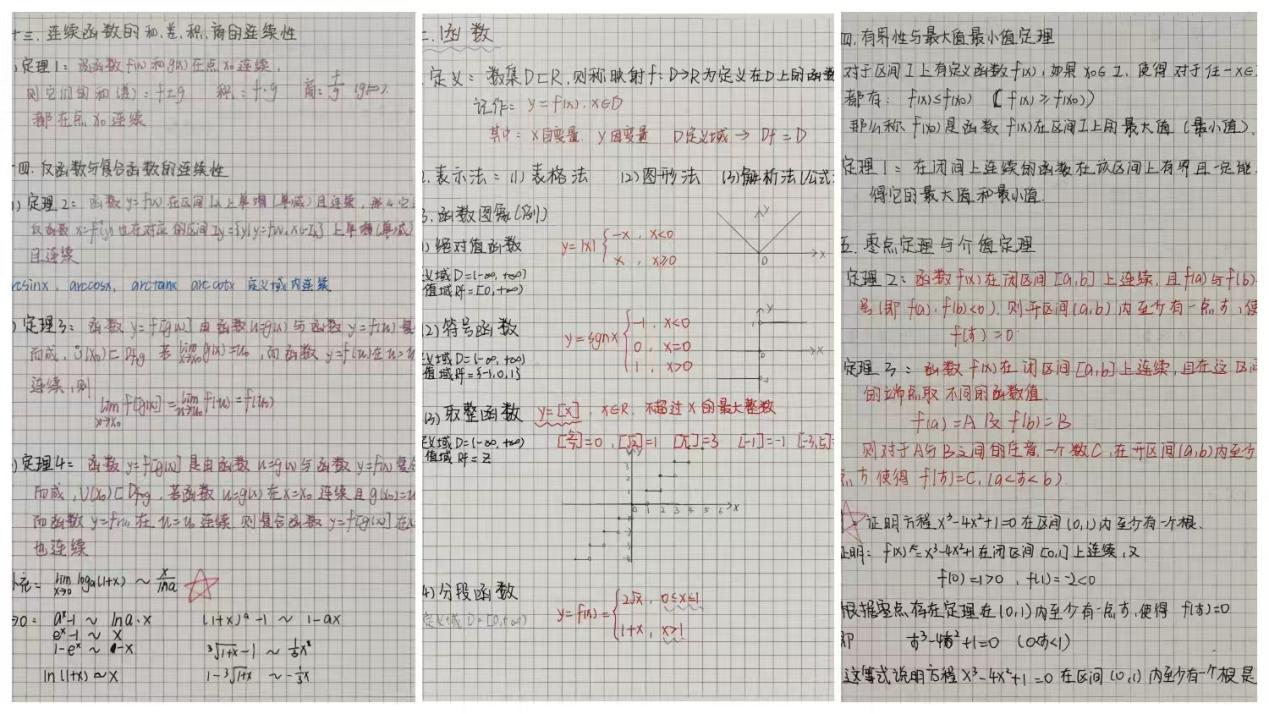 十三. 连续函数的和、差、积、商的连续性
定理1: 设函数f(x)和g(x)在点x₀连续,
则它们的和(差)=f±g 积=f·g 商=f/g (g≠0)
都在点x₀连续
十四. 反函数与复合函数的连续性
定理2: 函数y=f(x)在区间Ix上单增(单减)且连续,那么它
反函数x=f⁻¹(y)也在对应的区间Iy={y|y=f(x),x∈Ix}上单增(单减)
且连续
rcsinx, arccosx, arctanx arccotx 定义域内连续
定理3: 函数y=f[g(x)]由函数u=g(x)与函数y=f(u)复
而成, Ů(x₀)⊂Df∘g 若lim x→x₀ g(x)=u₀,而函数y=f(u)在u=u
连续,则
lim x→x₀ f[g(x)]=lim u→u₀ f(u)=f(u₀)
定理4: 函数y=f[g(x)]是由函数u=g(x)与函数y=f(u)复合
而成, U(x₀)⊂Df∘g, 若函数u=g(x)在x=x₀连续且g(x₀)=u
而函数y=f(u)在u=u₀连续 则复合函数y=f[g(x)]在x
也连续
补充: lim x→0 logₐ(1+x) ~ x/lna
→0: aˣ-1 ~ lna·x (1+x)ᵃ-1 ~ 1-ax
eˣ-1 ~ x
1-eˣ ~ -x ³√1+x-1 ~ ⅓x²
ln(1+x)~x 1-³√1+x ~ -⅓x
二. 函数
定义: 数集D⊂R,则称映射f:D→R为定义在D上的函数
记作: y=f(x), x∈D
其中: x自变量 y因变量 D定义域 → Df=D
2.表示法: (1)表格法 (2)图形法 (3)解析法(公式
3.函数图像(例)
(1)绝对值函数 y=|x| { -x, x<0
x, x≥0
定义域D=(-∞,+∞)
值域Rf=[0,+∞)
y
x
0
(2)符号函数 y=sgnx { -1, x<0
0, x=0
1, x>0
定义域D=(-∞,+∞)
值域Rf={-1,0,1}
x
(3)取整函数 y=[x], x∈R. 不超过x的最大整数
定义域D=(-∞,+∞) [5/7]=0, [√2]=1 [π]=3 [-1]=-1 [-3.5]=
值域Rf=Z
0 1 2 3 4 5 6 x
(4)分段函数 y=f(x)= { 2√x, 0≤x≤1
1+x, x>1
定义域D=[0,+∞)
四. 有界性与最大值最小值定理
对于区间I上有定义函数f(x),如果x₀∈I,使得对于任一x∈I
都有: f(x)≤f(x₀) (f(x)≥f(x₀))
那么称f(x₀)是函数f(x)在区间I上的最大值(最小值).
定理1: 在闭间上连续的函数在该区间上有界且一定能
得它的最大值和最小值.
五. 零点定理与介值定理
定理2: 函数f(x)在闭区间[a,b]上连续,且f(a)与f(b)
号(即f(a)·f(b)<0).则开区间(a,b)内至少有一点ξ,使
f(ξ)=0
定理3: 函数f(x)在闭区间[a,b]上连续,且在这区间
的端点取不同的函数值.
f(a)=A 及 f(b)=B
则对于A与B之间的任意一个数C,在开区间(a,b)内至少
点ξ使得 f(ξ)=C, (a<ξ<b)
证明方程x³-4x²+1=0在区间(0,1)内至少有一个根.
证明: f(x)=x³-4x²+1在闭区间[0,1]上连续,又
f(0)=1>0, f(1)=-2<0
根据零点存在定理在(0,1)内至少有一点ξ,使得 f(ξ)=0
即 ξ³-4ξ²+1=0 (0<ξ<1)
这等式说明方程x³-4x²+1=0在区间(0,1)内至少有一个根是